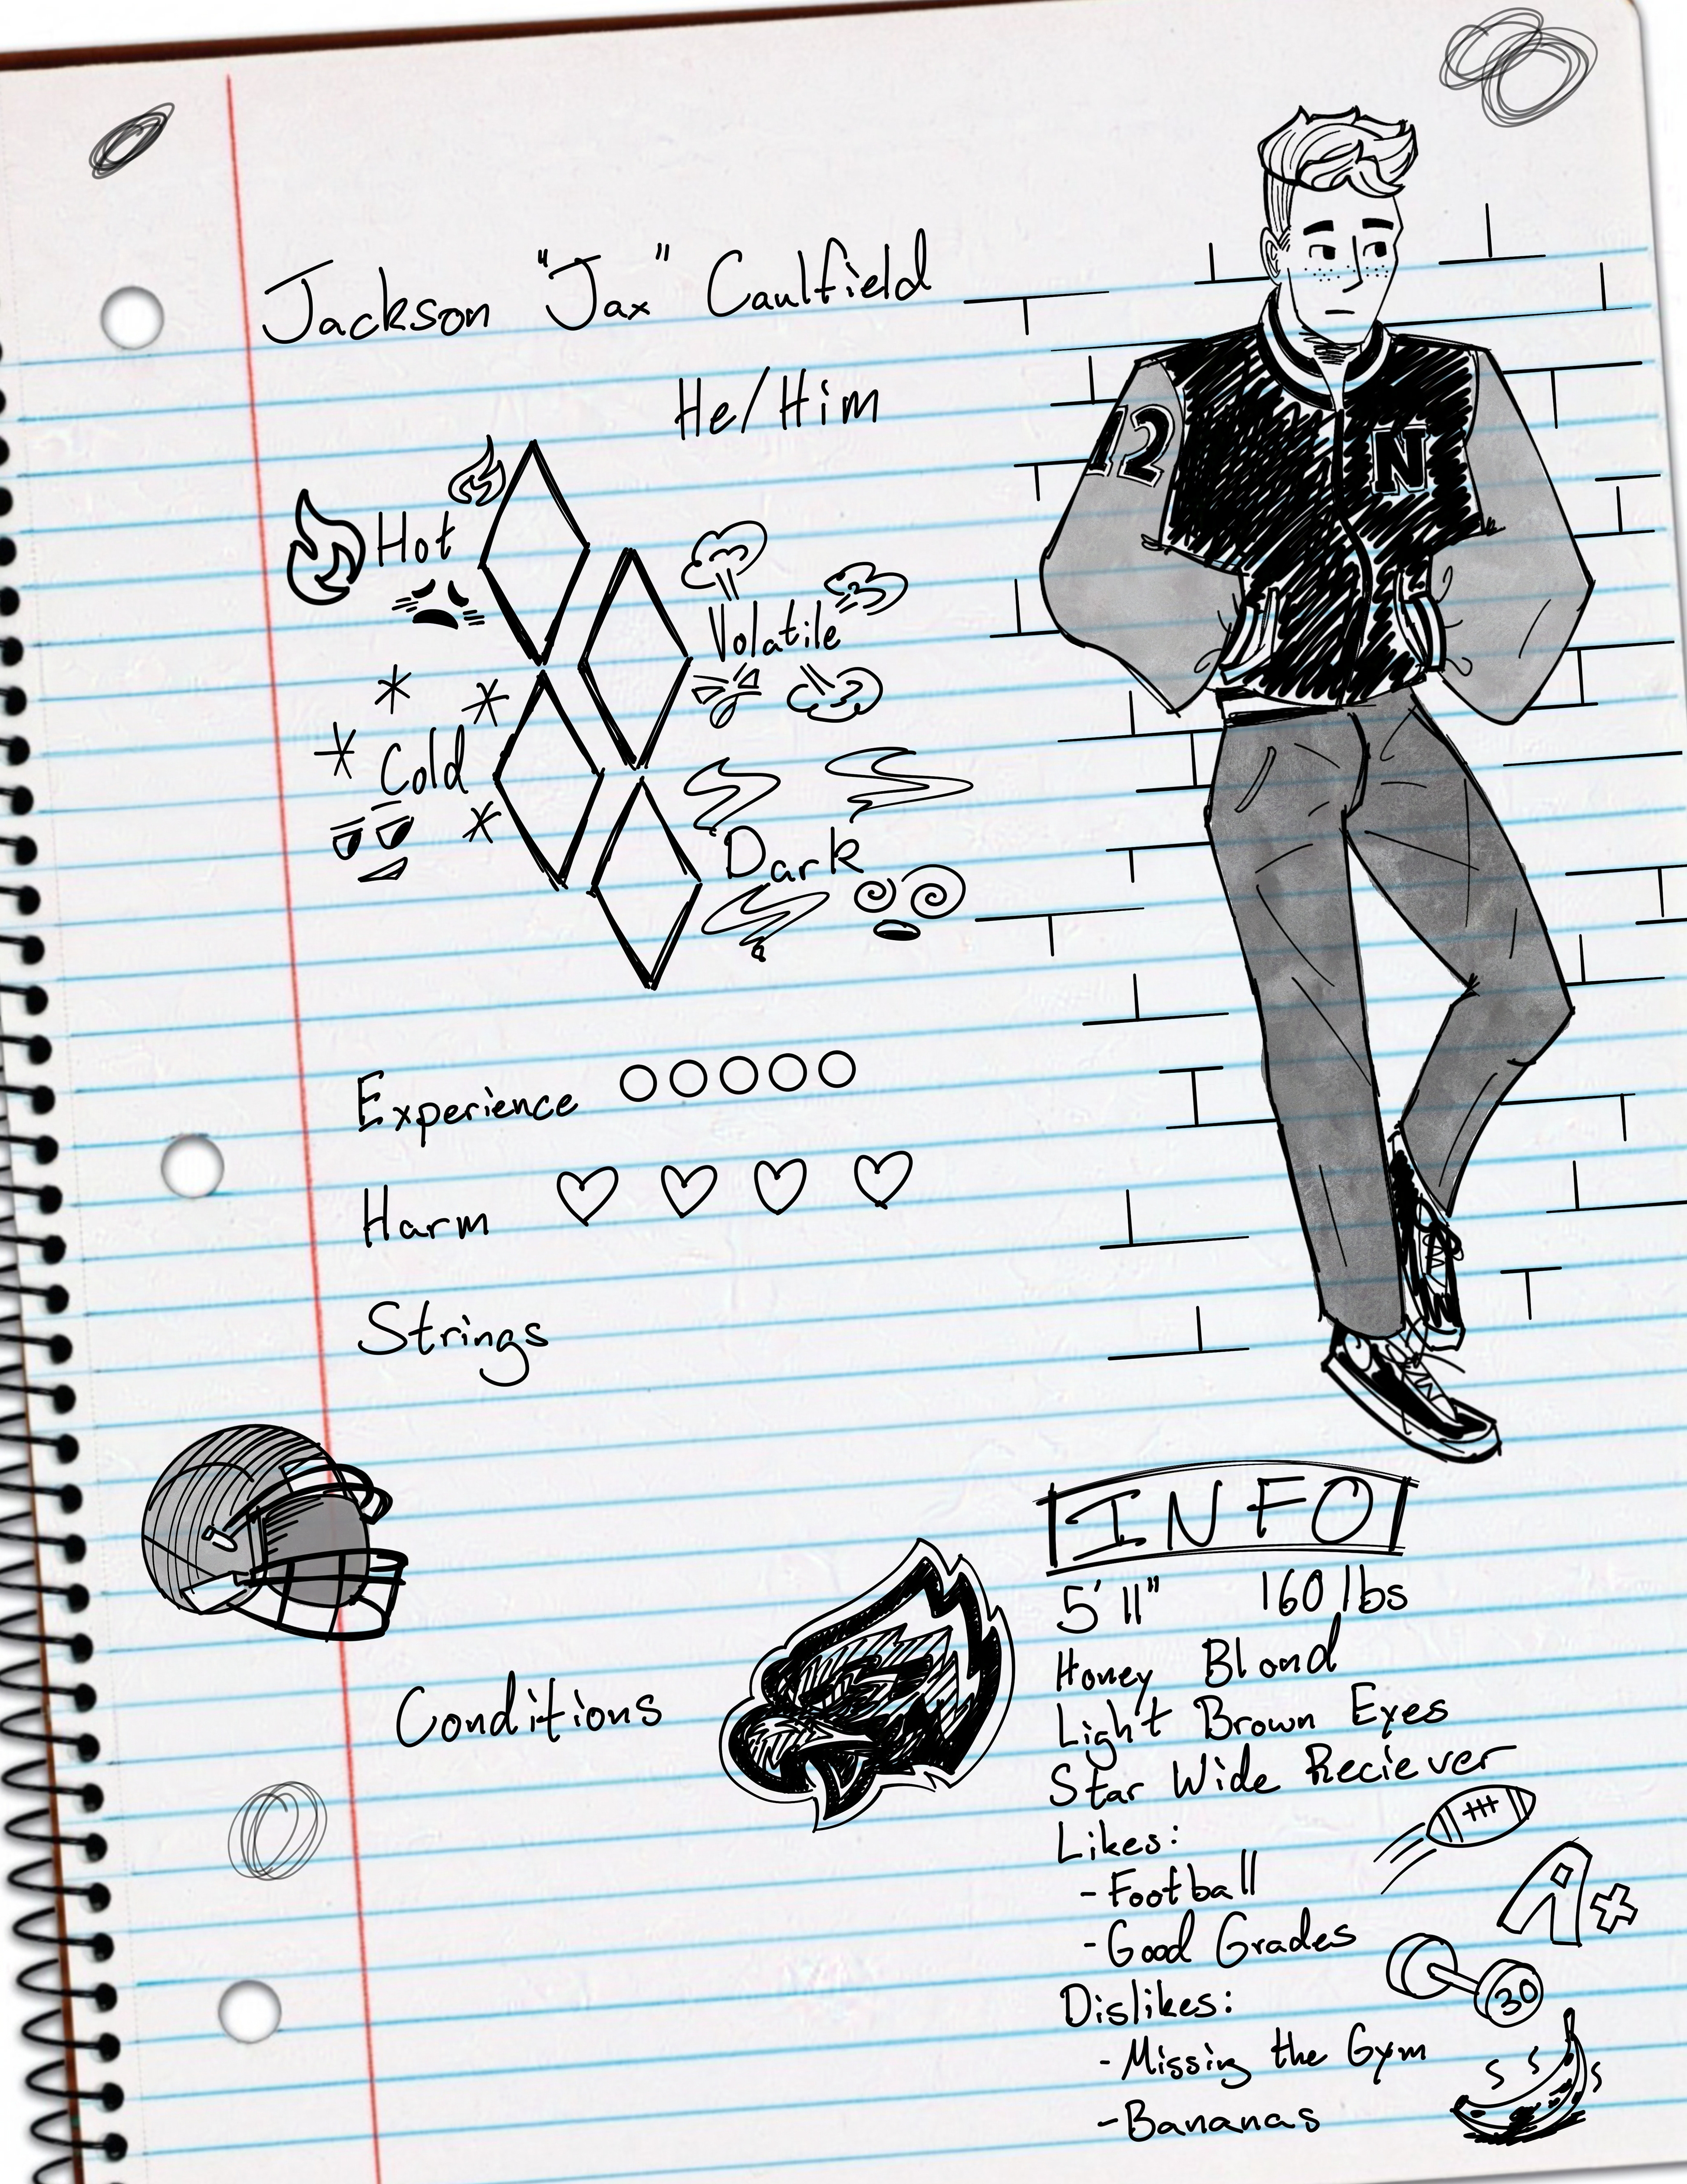 Jackson "Jax" Caulfield
He/Him
12
N
Hot
Volatile
Cold
Dark
Experience
Harm
Strings
Conditions
INFO
5'11" 160 lbs
Honey Blond
Light Brown Eyes
Star Wide Reciever
Likes:
-Football
-Good Grades
A+
Dislikes:
30
-Missing the Gym
-Bananas